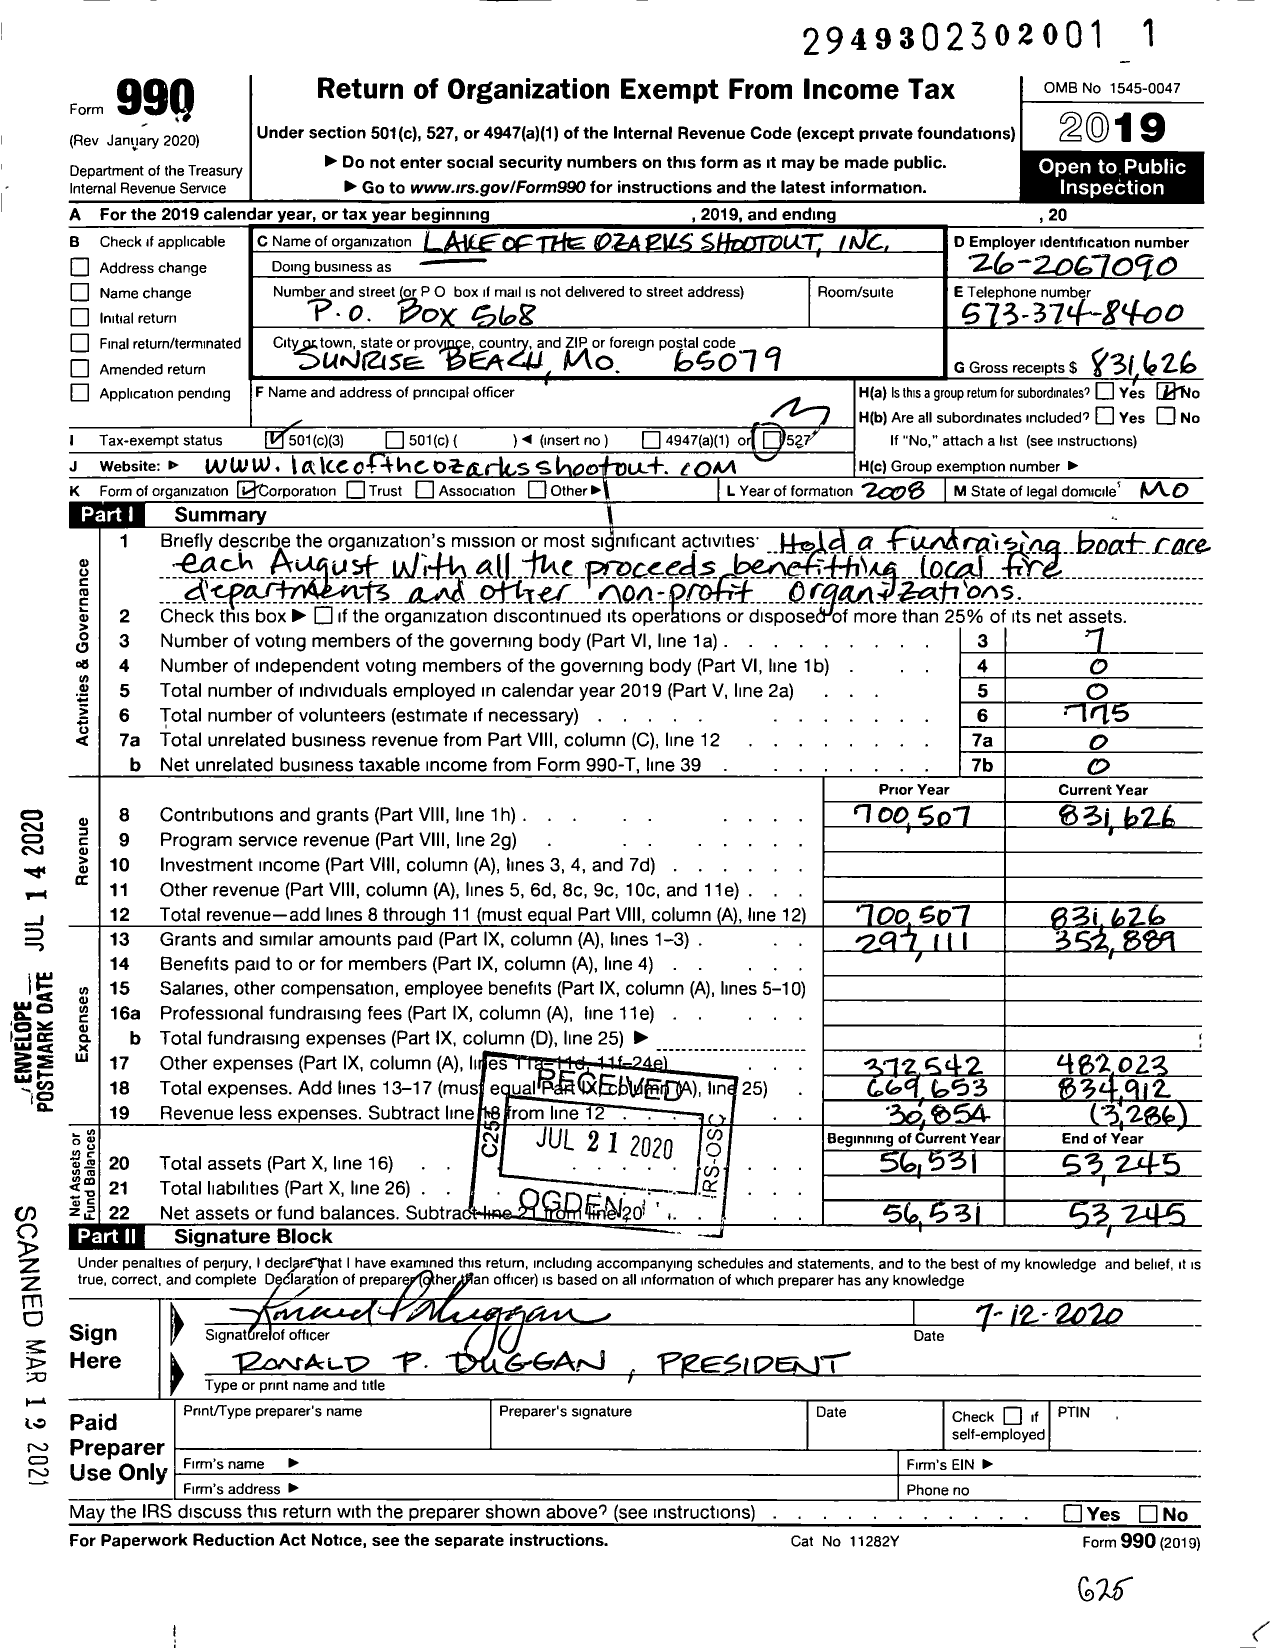 2949302302001 1
Form 990
(Rev January 2020)
Department of the Treasury
Internal Revenue Service
Return of Organization Exempt From Income Tax
Under section 501(c), 527, or 4947(a)(1) of the Internal Revenue Code (except private foundations)
▶ Do not enter social security numbers on this form as it may be made public.
▶ Go to www.irs.gov/Form990 for instructions and the latest information.
OMB No 1545-0047
2019
Open to Public
Inspection
A For the 2019 calendar year, or tax year beginning , 2019, and ending , 20
B Check if applicable
Address change
Name change
Initial return
Final return/terminated
Amended return
Application pending
C Name of organization LAKE OF THE OZARKS SHOOTOUT, INC.
Doing business as
Number and street (or P O box if mail is not delivered to street address) Room/suite
P.O. BOX 568
City or town, state or province, country, and ZIP or foreign postal code
SUNRISE BEACH, MO. 65079
D Employer identification number
26-2067090
E Telephone number
573-374-8400
G Gross receipts $ 831,626
F Name and address of principal officer
H(a) Is this a group return for subordinates? Yes No
H(b) Are all subordinates included? Yes No
If "No," attach a list (see instructions)
H(c) Group exemption number ▶
I Tax-exempt status 501(c)(3) 501(c) ( ) ◀ (insert no) 4947(a)(1) or 527
J Website: ▶ www.lakeoftheozarksshootout.com
K Form of organization Corporation Trust Association Other ▶
L Year of formation 2008
M State of legal domicile MO
Part I Summary
Activities & Governance
1 Briefly describe the organization's mission or most significant activities: Hold a fundraising boat race
each August with all the proceeds benefitting local fire
departments and other non-profit organizations.
2 Check this box ▶ if the organization discontinued its operations or disposed of more than 25% of its net assets.
3 Number of voting members of the governing body (Part VI, line 1a) 3 7
4 Number of independent voting members of the governing body (Part VI, line 1b) 4 0
5 Total number of individuals employed in calendar year 2019 (Part V, line 2a) 5 0
6 Total number of volunteers (estimate if necessary) 6 775
7a Total unrelated business revenue from Part VIII, column (C), line 12 7a 0
b Net unrelated business taxable income from Form 990-T, line 39 7b 0
Revenue
Prior Year Current Year
8 Contributions and grants (Part VIII, line 1h) 700,507 831,626
9 Program service revenue (Part VIII, line 2g)
10 Investment income (Part VIII, column (A), lines 3, 4, and 7d)
11 Other revenue (Part VIII, column (A), lines 5, 6d, 8c, 9c, 10c, and 11e)
12 Total revenue—add lines 8 through 11 (must equal Part VIII, column (A), line 12) 700,507 831,626
Expenses
13 Grants and similar amounts paid (Part IX, column (A), lines 1–3) 297,111 352,889
14 Benefits paid to or for members (Part IX, column (A), line 4)
15 Salaries, other compensation, employee benefits (Part IX, column (A), lines 5–10)
16a Professional fundraising fees (Part IX, column (A), line 11e)
b Total fundraising expenses (Part IX, column (D), line 25) ▶
17 Other expenses (Part IX, column (A), lines 11a–11d, 11f–24e) 372,542 482,023
18 Total expenses. Add lines 13–17 (must equal Part IX, column (A), line 25) 669,653 834,912
19 Revenue less expenses. Subtract line 18 from line 12 30,854 (3,286)
Net Assets or
Fund Balances
Beginning of Current Year End of Year
20 Total assets (Part X, line 16) 56,531 53,245
21 Total liabilities (Part X, line 26)
22 Net assets or fund balances. Subtract line 21 from line 20 56,531 53,245
RECEIVED
JUL 21 2020
OGDEN,
IRS-OSC
ENVELOPE
POSTMARK DATE JUL 14 2020
SCANNED MAR 19 2021
Part II Signature Block
Under penalties of perjury, I declare that I have examined this return, including accompanying schedules and statements, and to the best of my knowledge and belief, it is
true, correct, and complete Declaration of preparer (other than officer) is based on all information of which preparer has any knowledge
Sign
Here
7-12-2020
Signature of officer Date
RONALD P. DUGGAN, PRESIDENT
Type or print name and title
Paid
Preparer
Use Only
Print/Type preparer's name Preparer's signature Date Check if
self-employed PTIN
Firm's name ▶ Firm's EIN ▶
Firm's address ▶ Phone no
May the IRS discuss this return with the preparer shown above? (see instructions) Yes No
For Paperwork Reduction Act Notice, see the separate instructions. Cat No 11282Y Form 990 (2019)
G25